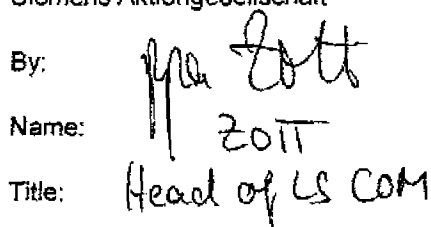 Siemens Aktiengesellschaft
By: ppa Zott
Name: ZOTT
Title: Head of LS COM